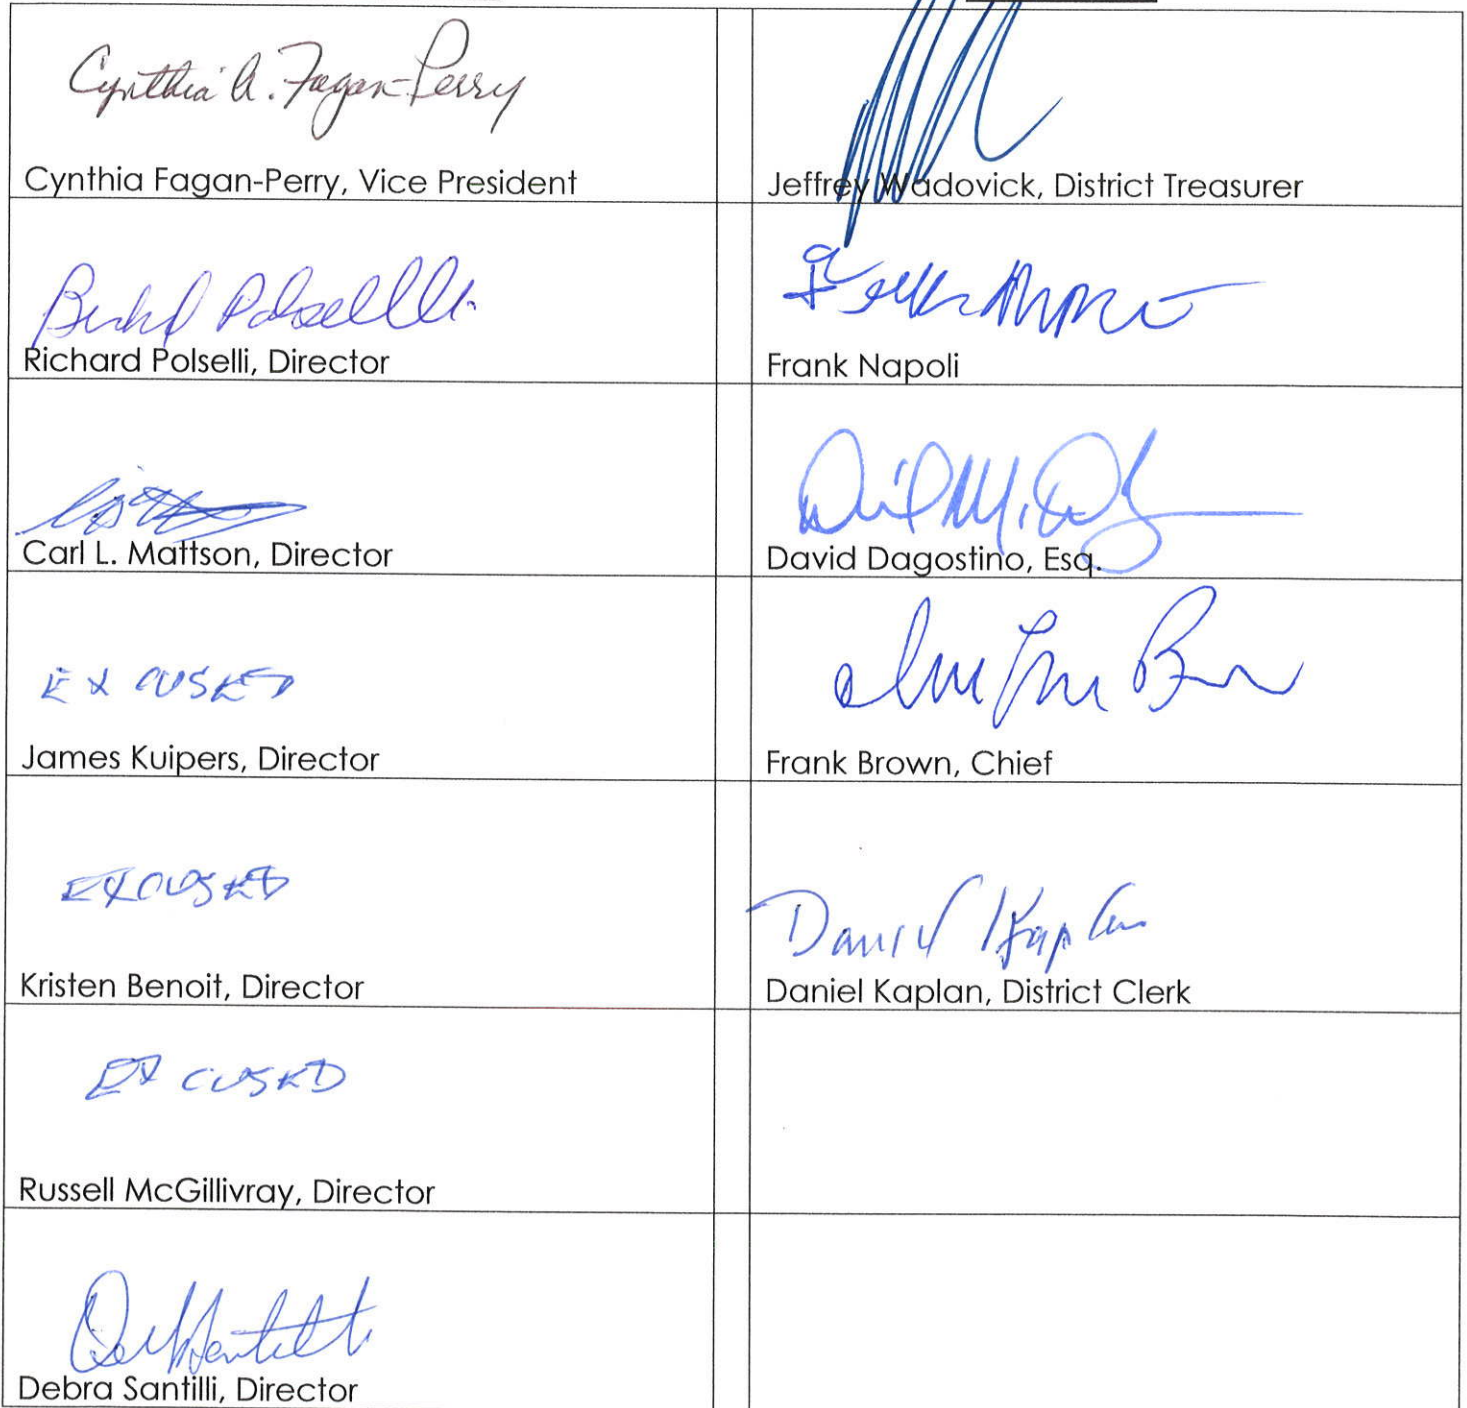 Cynthia A. Fagan-Perry
Cynthia Fagan-Perry, Vice President
Jeffrey Wadovick, District Treasurer
Richard Polselli, Director
Frank Napoli
Carl L. Mattson, Director
David Dagostino, Esq.
EXCUSED
James Kuipers, Director
Frank Brown, Chief
EXCUSED
Kristen Benoit, Director
Daniel Kaplan
Daniel Kaplan, District Clerk
EXCUSED
Russell McGillivray, Director
Debra Santilli, Director